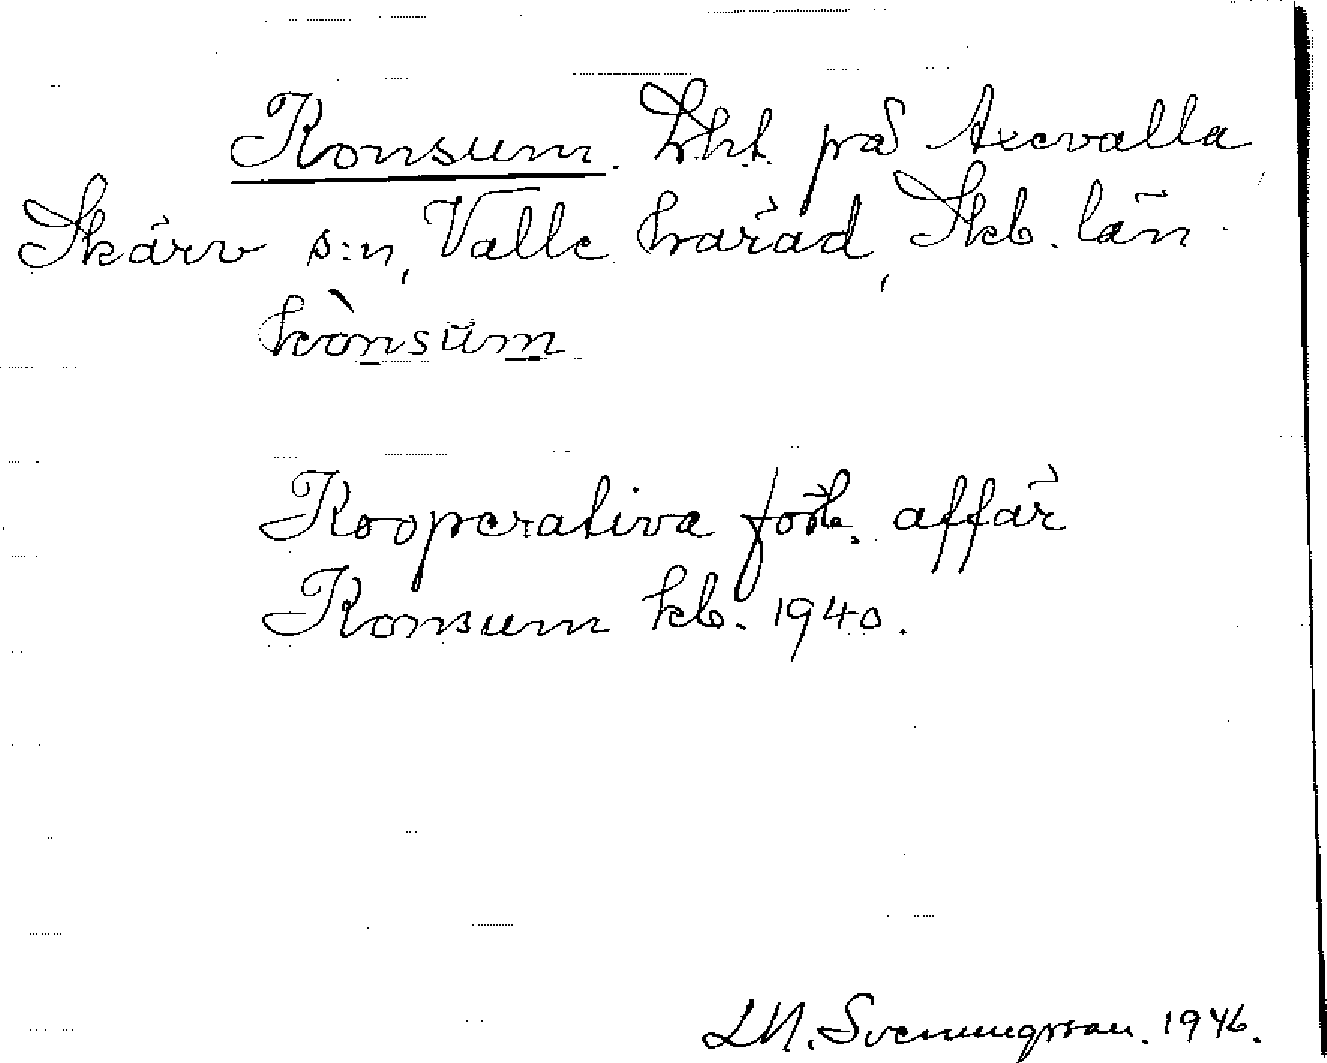 Konsum. Lht. på Axevalla
Skärv s:n, Valle härad, Skb. län.
kònsum
Kooperativa förb. affär
Konsum kb. 1940.
L.N. Svenungsson. 1946.